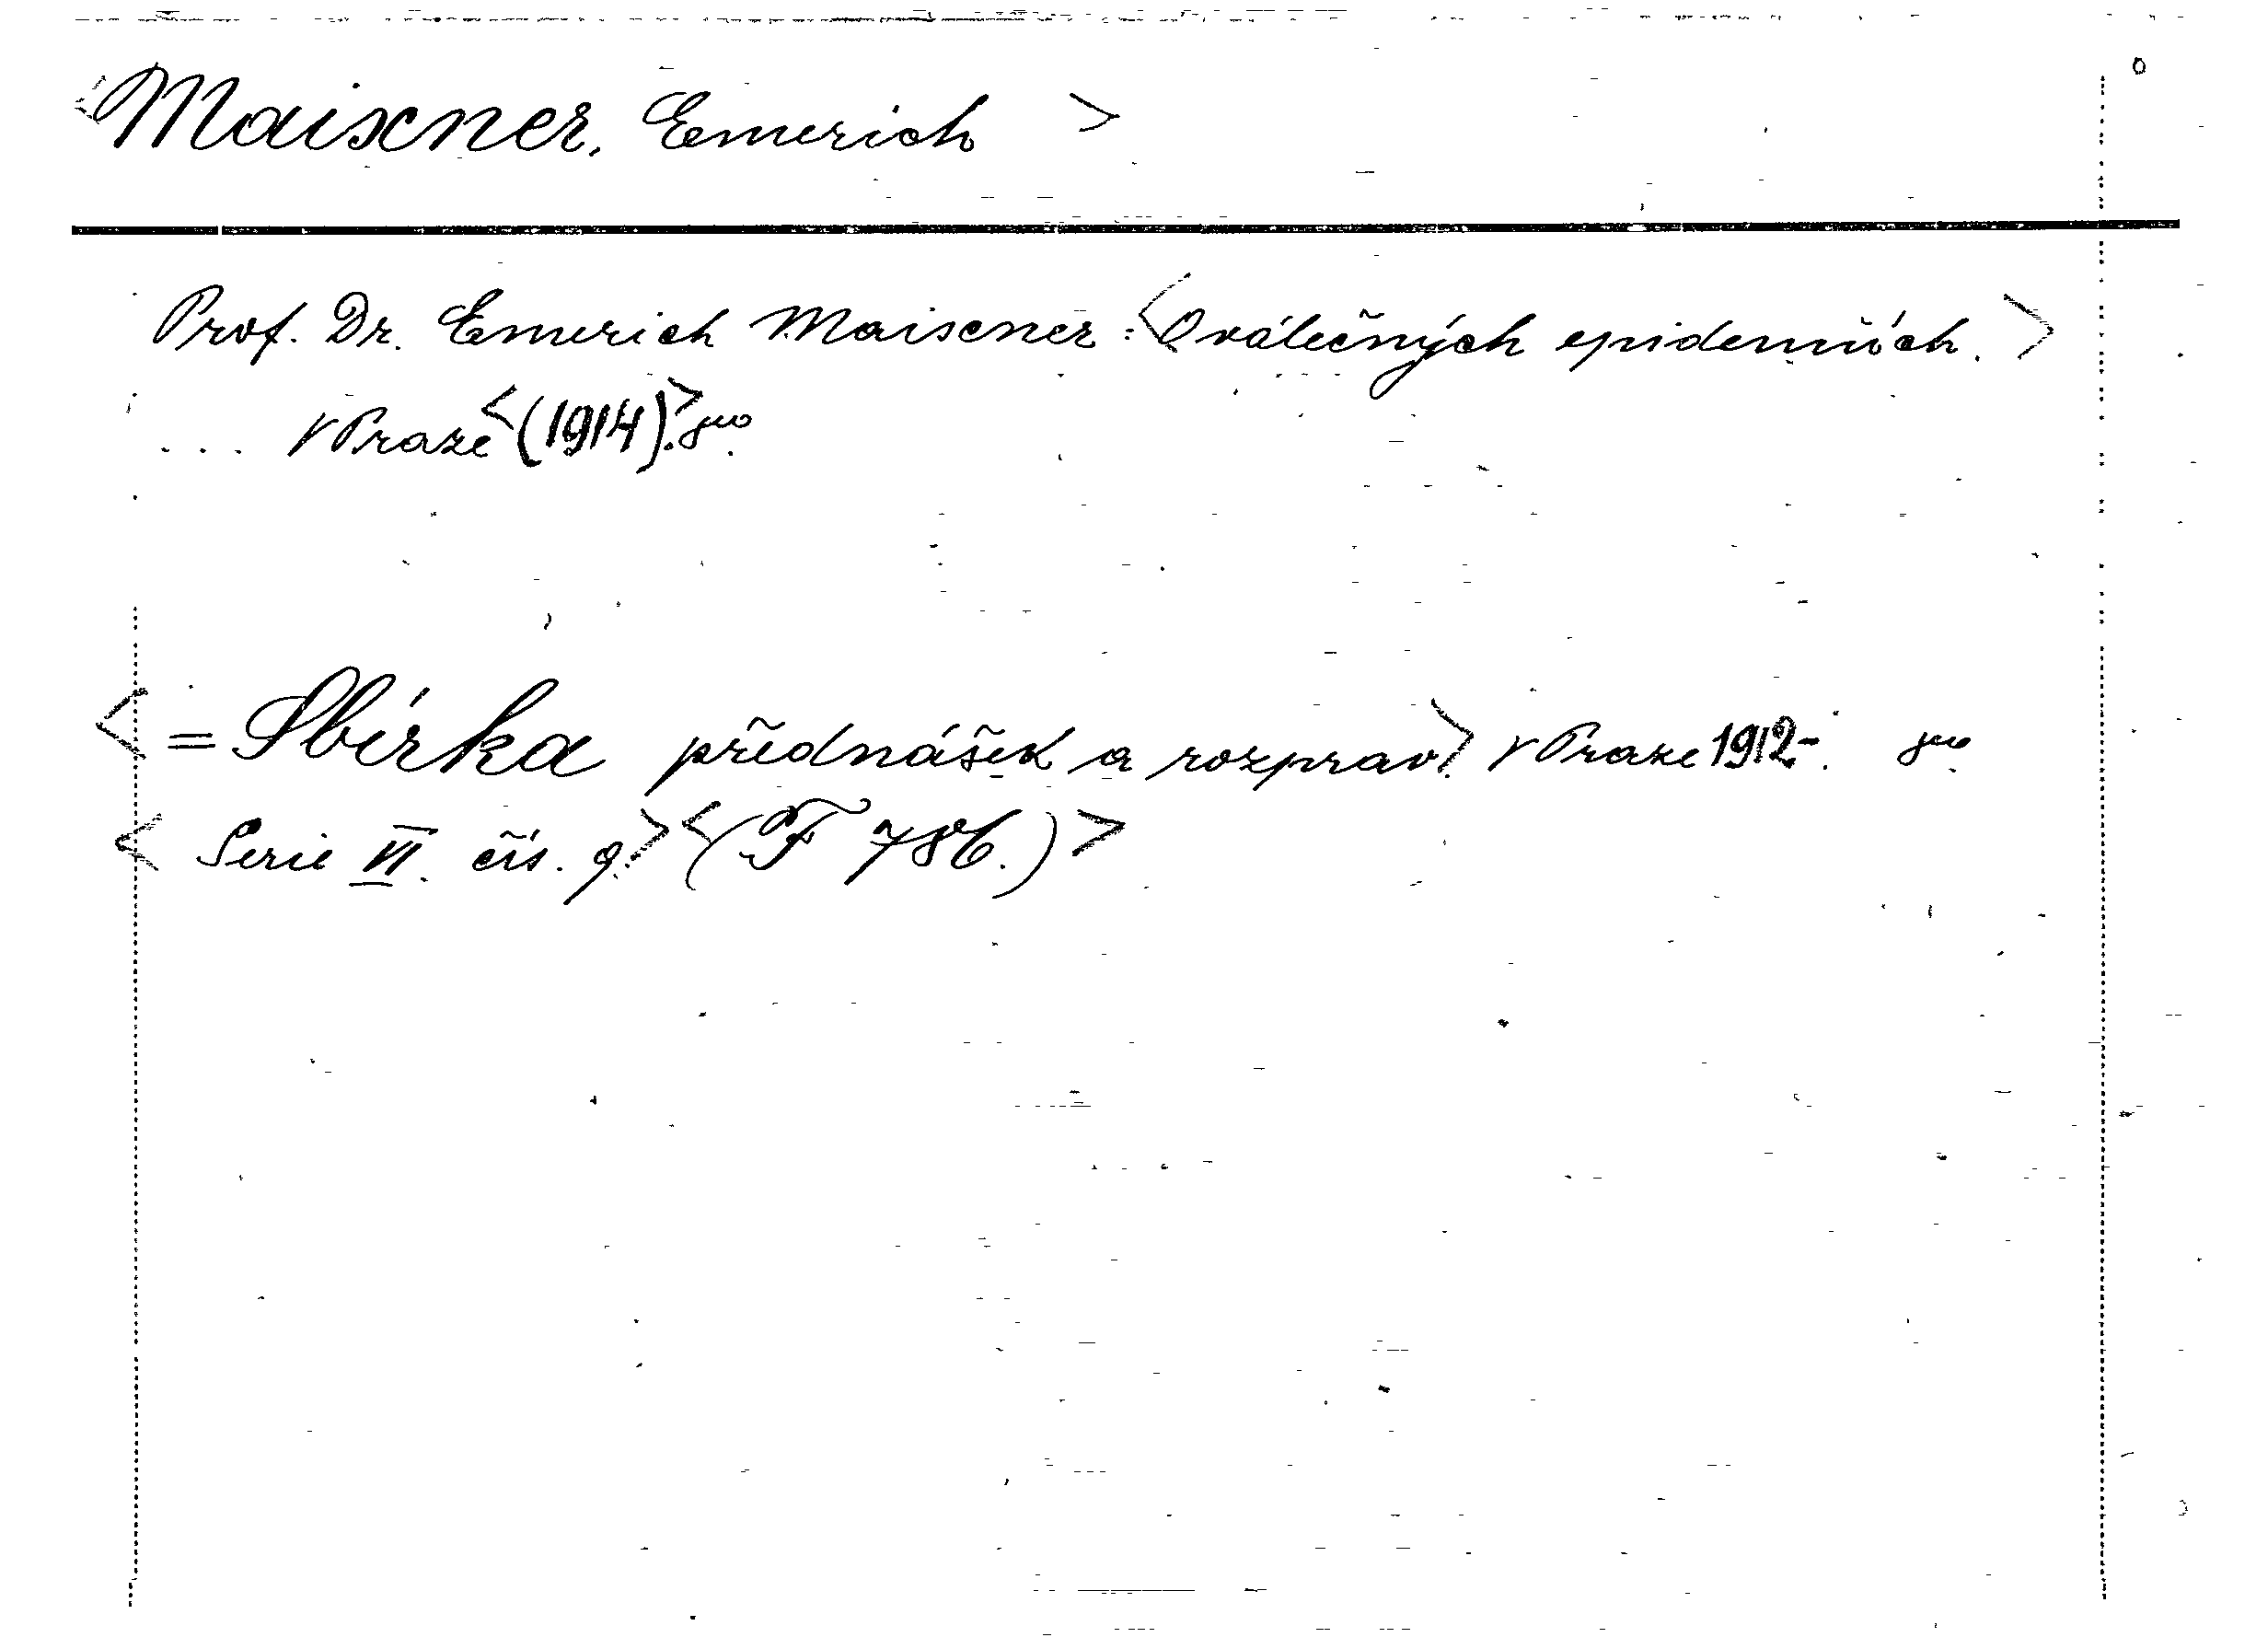 <Maixner, Emerich>
Prof. Dr. Emerich Maixner: <O válečných epidemiích.>
... V Praze <(1914).> 8vo.
<= Sbírka přednášek a rozprav.> V Praze 1912-. 8vo.
< Serie VI. čís. 9.> <(F 786.)>